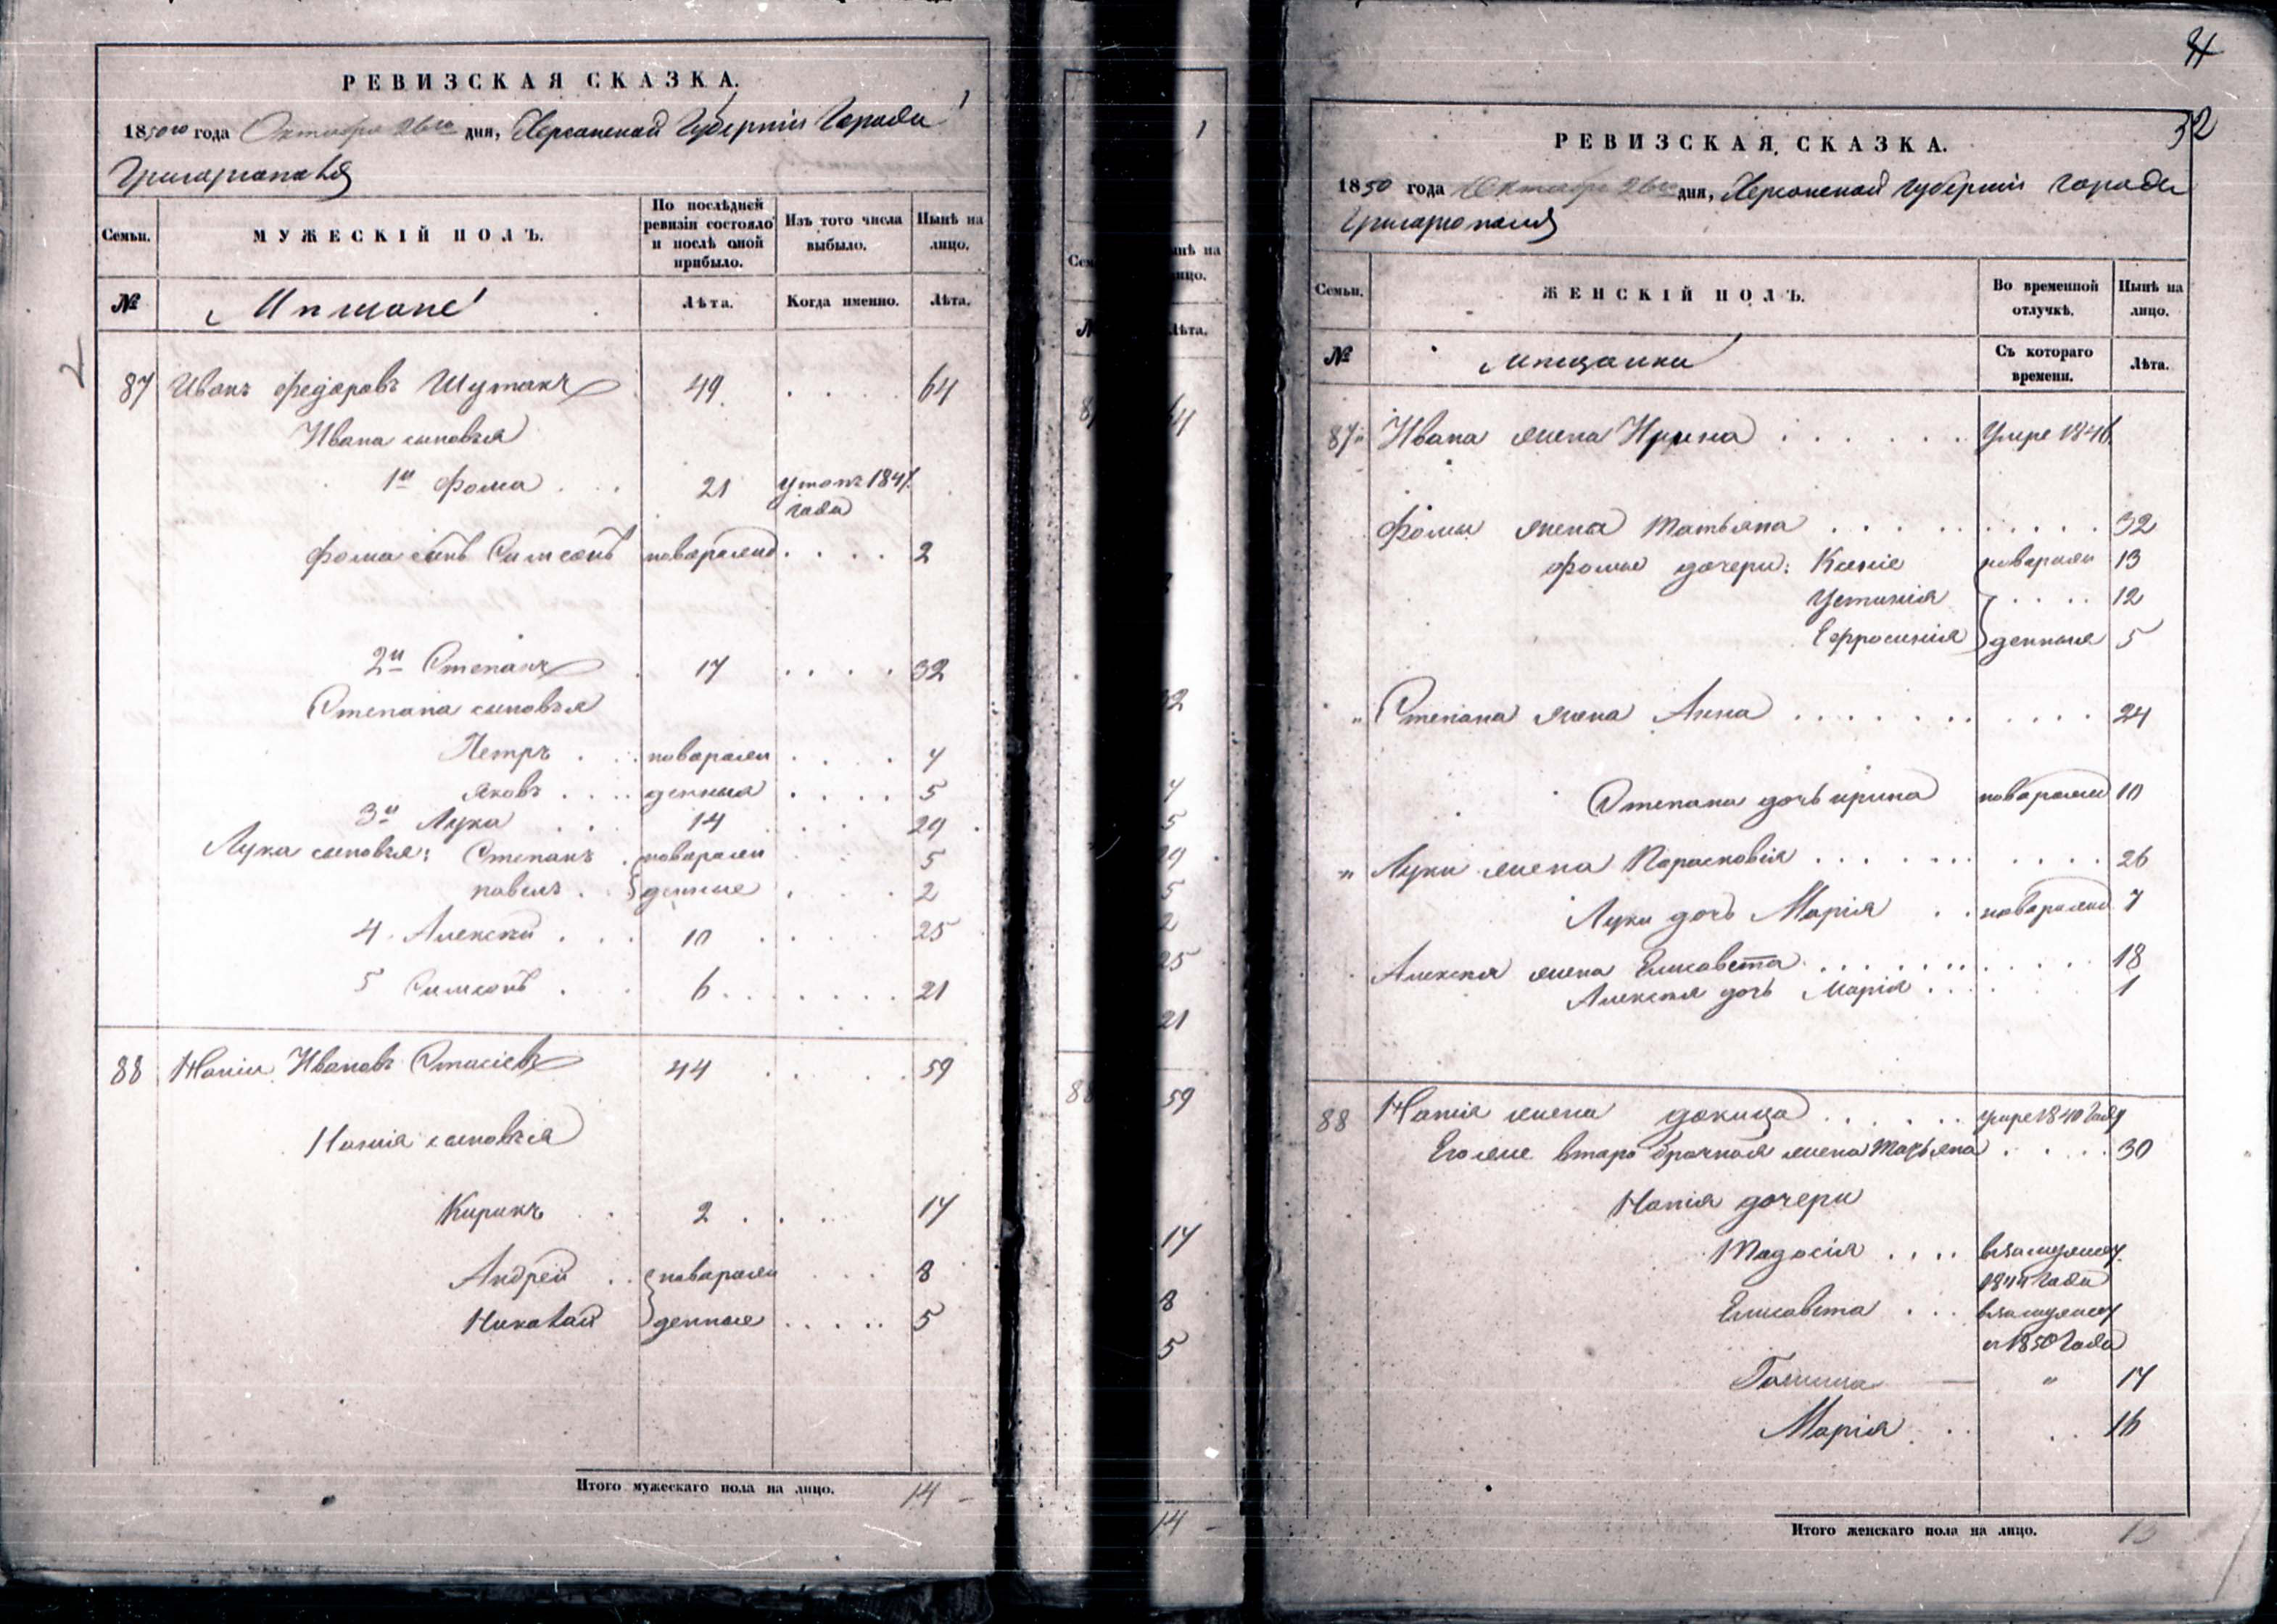 РЕВИЗСКАЯ СКАЗКА.
1850го года Октября 26го дня, Херсонской Губернии Города
Григориополя
Семьи.
МУЖЕСКІЙ ПОЛЪ.
По послѣдней ревизіи состояло и послѣ оной прибыло.
Изъ того числа выбыло.
Нынѣ на лицо.
№
Лѣта.
Когда именно.
Лѣта.
87 Иванъ Федоровъ Шутакъ 49 64
Ивана сыновья
1й Фома 21 утоп 184
года
Фома сынъ Симеонъ новорожд 2
2й Степанъ 17 32
Степана сыновья
Петръ новорож 7
Яковъ денныя 5
3й Лука 14 29
Лука сыновья: Степанъ новорож 5
павелъ денные 2
4 Алексей 10 25
5 Симеонъ 6 21
88 Ивановъ Стасіевъ 44 59
сыновья
Кирикъ 2 17
Андрей новорож 8
Николай денные 5
Итого мужескаго пола на лицо. 14
Сем
нынѣ на
лицо.
Лѣта.
32
7
5
29
5
2
25
21
88 59
17
8
5
14
32
РЕВИЗСКАЯ СКАЗКА.
1850 года Октября 26го дня, Херсонской Губерніи города
Григориополя
Семьи.
ЖЕНСКІЙ ПОЛЪ.
Во временной отлучкѣ.
Нынѣ на лицо.
№
мещанки
Съ котораго времени.
Лѣта.
87 Ивана жена Ирина Умре 1846
Фомы жена Татьяна 32
Фомы дочери: Ксенія новорож 13
Устинія 12
Ефросинія денныя 5
" Степана жена Анна 24
Степана дочь ирина новорожд 10
" Луки жена Парасковія 26
Луки дочь Марія новорожд 7
Алексея жена Елисавета 18
Алексея дочь Марія 1
88 жена докица умре 1840 года
Его же второ брачная жена Татьяна 30
дочери
Тадосія въ замуже
года
Елисавета въ замуже
1850 года
" 17
Марія 16
Итого женскаго пола на лицо. 13